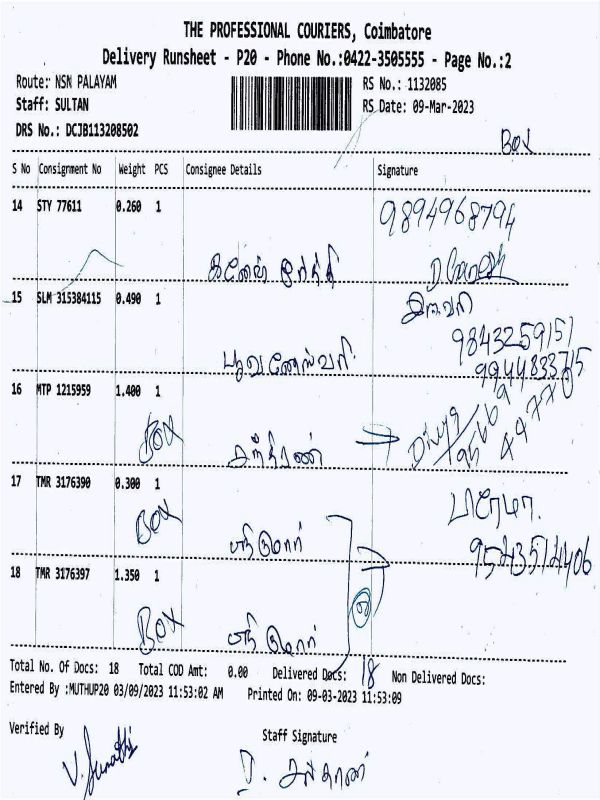 THE PROFESSIONAL COURIERS, Coimbatore
Delivery Runsheet - P20 - Phone No.:0422-3505555 - Page No.:2
Route: NSN PALAYAM
RS No.: 1132085
Staff: SULTAN
RS Date: 09-Mar-2023
DRS No.: DCJB113208502
BOX
S No Consignment No Weight PCS Consignee Details Signature
14 STY 77611 0.260 1
9894968794
15 SLM 315384115 0.490 1
9843259151
புவனேஸ்வரி
16 MTP 1215959 1.400 1
BOX
17 TMR 3176390 0.300 1
பிரேமா.
BOX
9543514406
18 TMR 3176397 1.350 1
BOX
Total No. Of Docs: 18 Total COD Amt: 0.00 Delivered Docs: 18 Non Delivered Docs:
Entered By :MUTHUP20 03/09/2023 11:53:02 AM Printed On: 09-03-2023 11:53:09
Verified By
Staff Signature